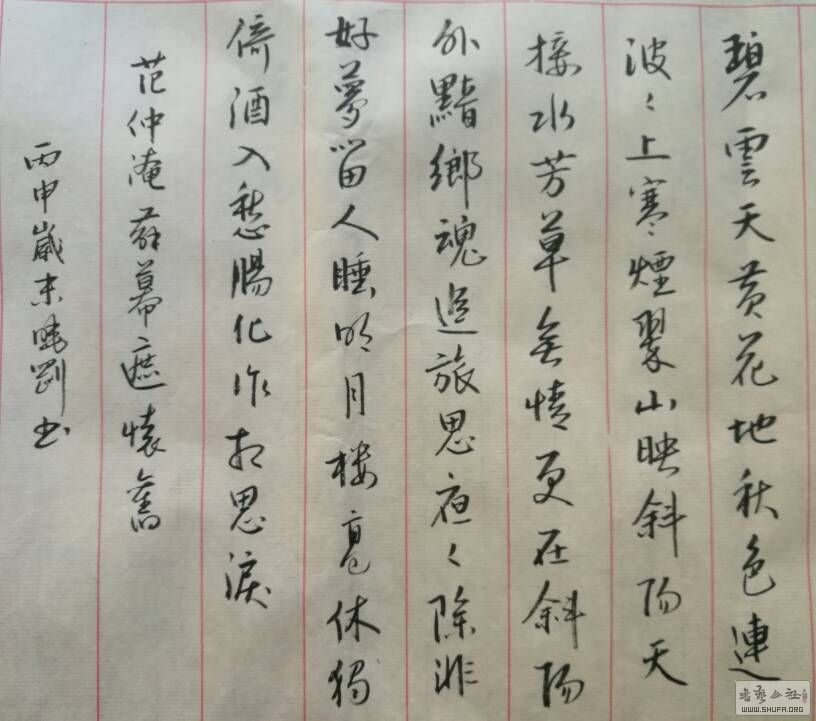 碧雲天黃花地秋色連
波々上寒煙翠山映斜陽天
接水芳草無情更在斜陽
外黯鄉魂追旅思夜々除非
好夢留人睡明月樓高休獨
倚酒入愁腸化作相思淚
范仲淹蘇幕遮懷舊
丙申歲末曉剛書
書藝公社
WWW.SHUFA.ORG